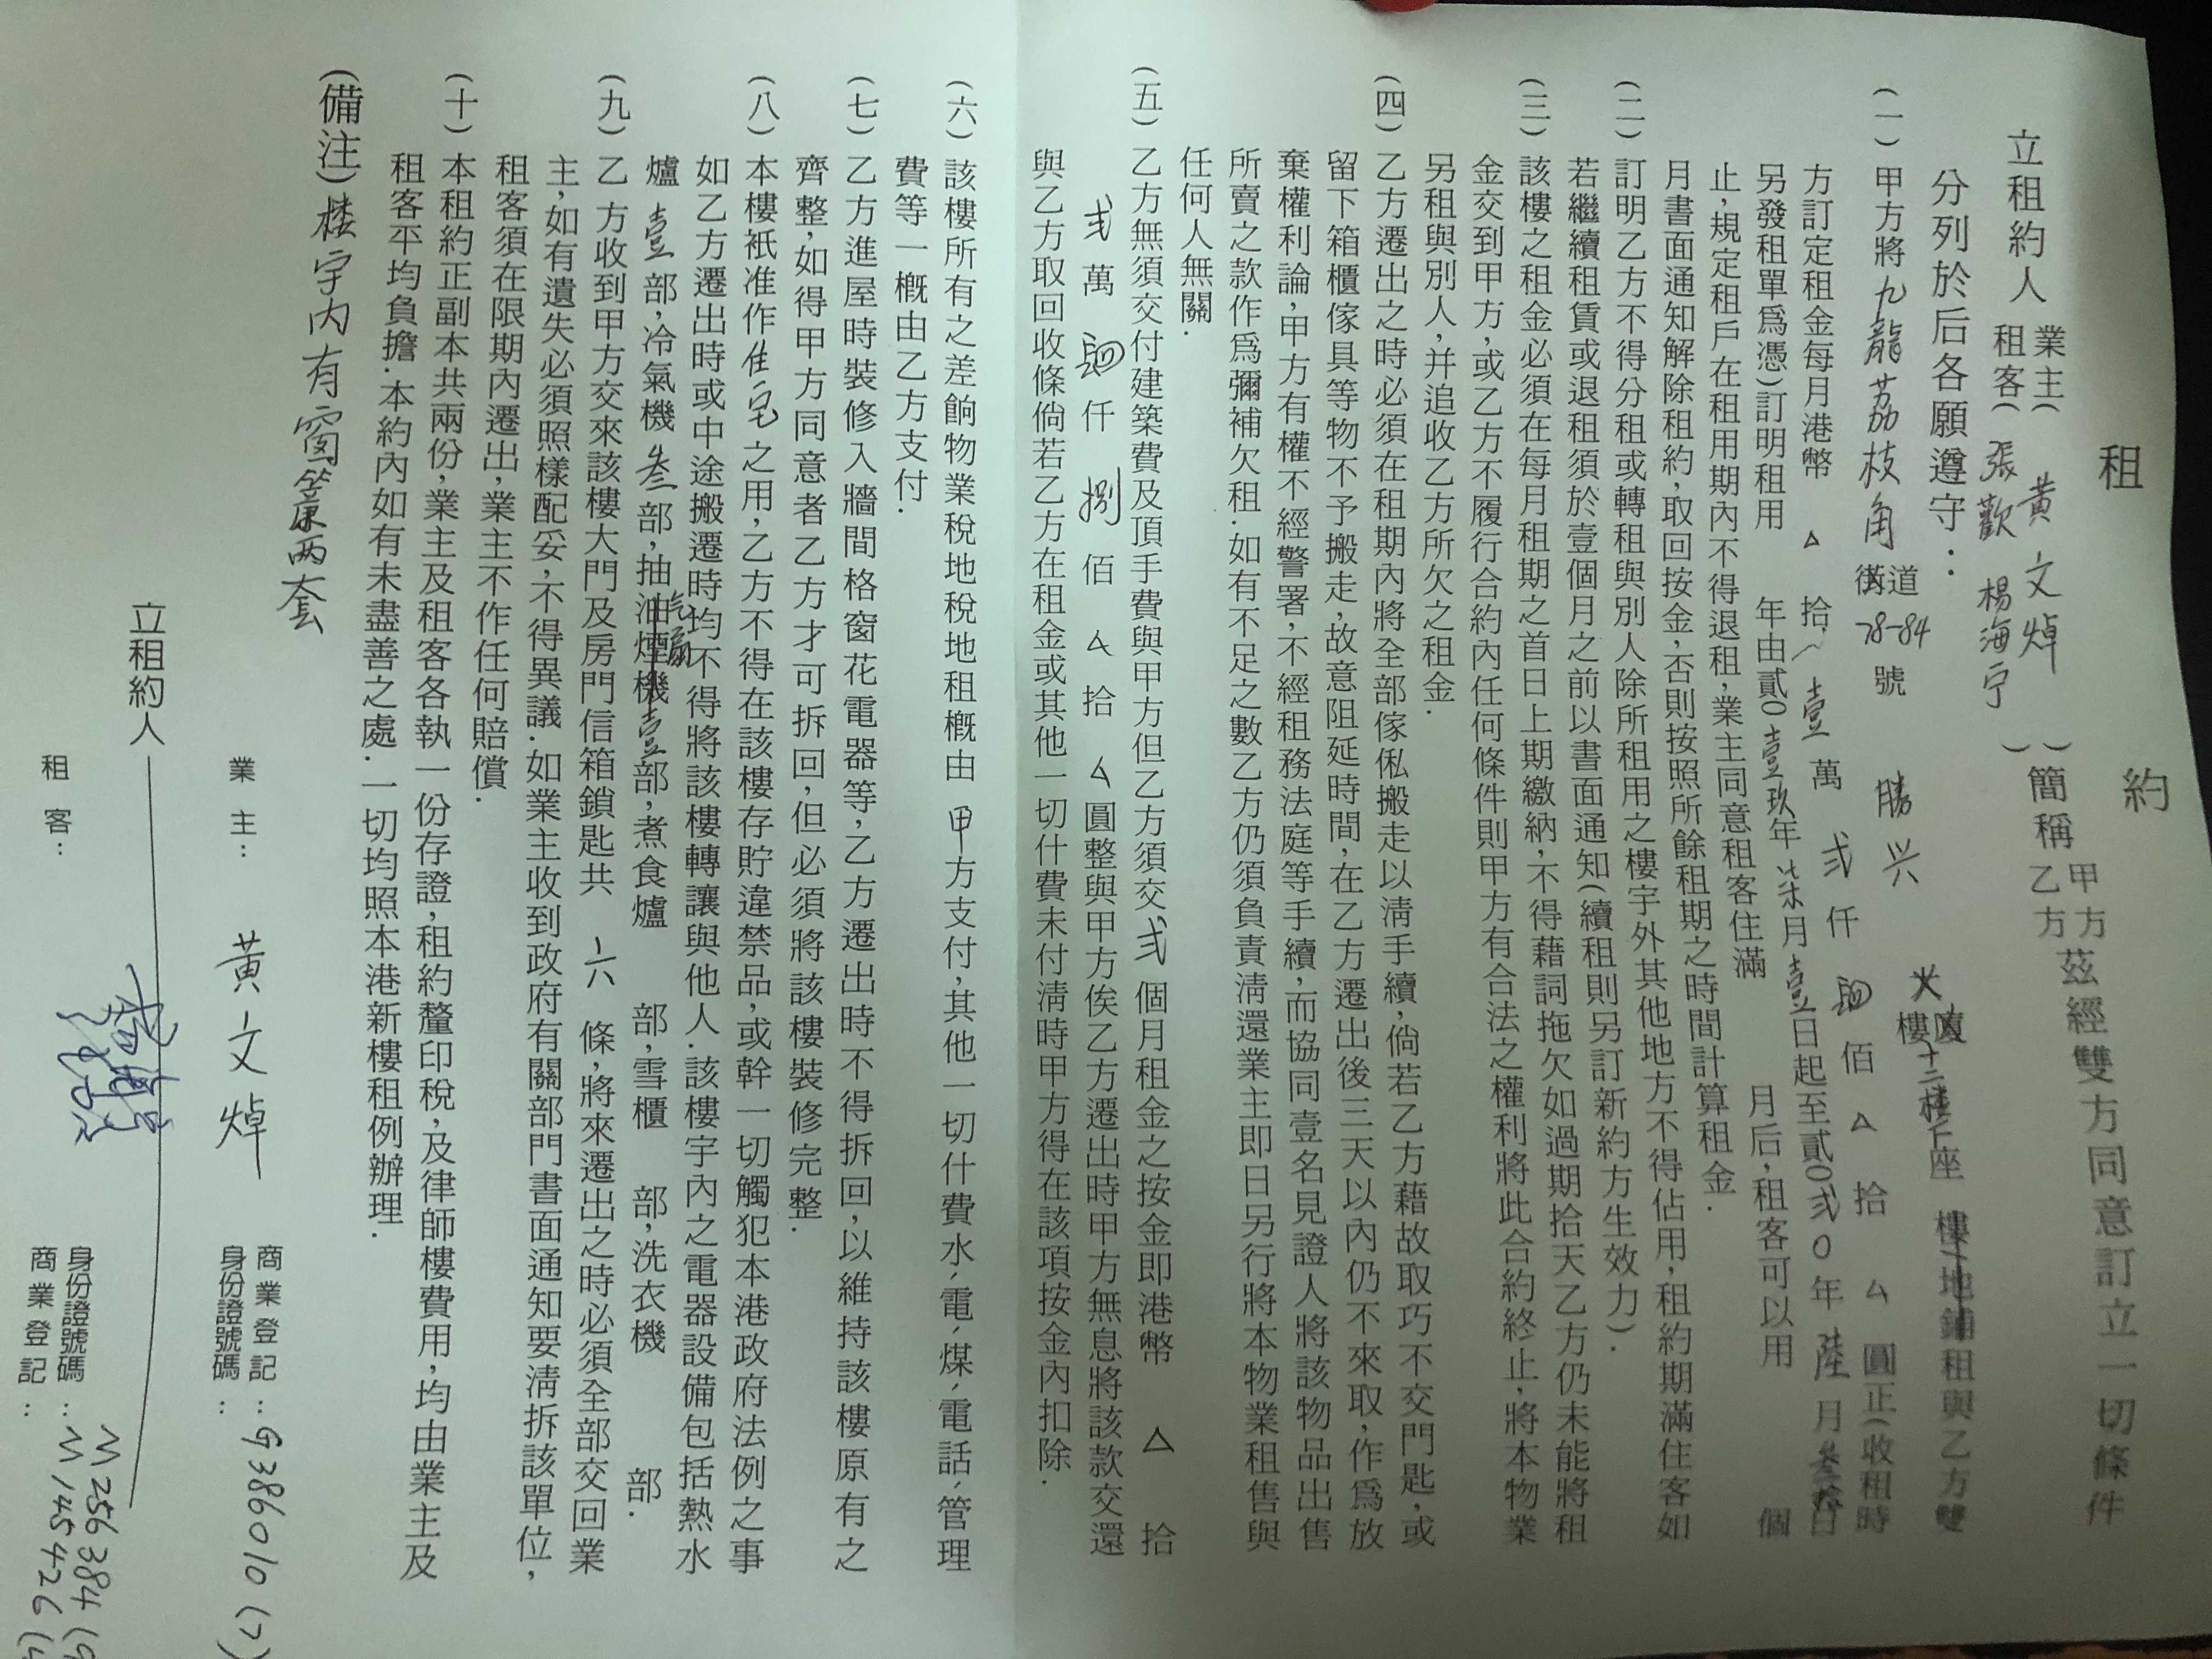 租約
立租約人 業主( 黃文焯 )簡稱 甲方 茲經雙方同意訂立一切條件
租客( 張歡 楊海宁 ) 乙方
分列於后各願遵守：
(一) 甲方將九龍荔枝角 街道 78-84 號 勝兴 大廈 座 樓/地鋪租與乙方雙
方訂定租金每月港幣 △ 拾 壹 萬 弍 仟 肆 佰 △ 拾 △ 圓正(收租時
另發租單爲憑)訂明租用 年由貳0壹玖年柒月壹日起至貳0弍0年陸月叁拾日
止,規定租戶在租用期內不得退租,業主同意租客住滿 個月后,租客可以用
月書面通知解除租約,取回按金,否則按照所餘租期之時間計算租金.
(二) 訂明乙方不得分租或轉租與別人除所租用之樓宇外其他地方不得佔用,租約期滿住客如
若繼續租賃或退租須於壹個月之前以書面通知(續租則另訂新約方生效力).
(三) 該樓之租金必須在每月租期之首日上期繳納,不得藉詞拖欠如過期拾天乙方仍未能將租
金交到甲方,或乙方不履行合約內任何條件則甲方有合法之權利將此合約終止,將本物業
另租與別人,并追收乙方所欠之租金.
(四) 乙方遷出之時必須在租期內將全部傢俬搬走以清手續,倘若乙方藉故取巧不交門匙,或
留下箱櫃傢具等物不予搬走,故意阻延時間,在乙方遷出後三天以內仍不來取,作爲放
棄權利論,甲方有權不經警署,不經租務法庭等手續,而協同壹名見證人將該物品出售
所賣之款作爲彌補欠租.如有不足之數乙方仍須負責清還業主即日另行將本物業租售與
任何人無關.
(五) 乙方無須交付建築費及頂手費與甲方但乙方須交弍個月租金之按金即港幣 △ 拾
弍 萬 肆 仟 捌 佰 △ 拾 △ 圓整與甲方俟乙方遷出時甲方無息將該款交還
與乙方取回收條倘若乙方在租金或其他一切什費未付清時甲方得在該項按金內扣除.
(六) 該樓所有之差餉物業稅地稅地租概由 甲方支付,其他一切什費水、電、煤、電話、管理
費等一概由乙方支付.
(七) 乙方進屋時裝修入牆間格窗花電器等,乙方遷出時不得拆回,以維持該樓原有之
齊整,如得甲方同意者乙方才可拆回,但必須將該樓裝修完整.
(八) 本樓祇准作住宅之用,乙方不得在該樓存貯違禁品,或幹一切觸犯本港政府法例之事
如乙方遷出時或中途搬遷時均不得將該樓轉讓與他人.該樓宇內之電器設備包括熱水
爐 壹 部,冷氣機 叁 部,抽油煙機 壹 部,煮食爐 部,雪櫃 部,洗衣機 部.
(九) 乙方收到甲方交來該樓大門及房門信箱鎖匙共 六 條,將來遷出之時必須全部交回業
主,如有遺失必須照樣配妥,不得異議.如業主收到政府有關部門書面通知要清拆該單位,
租客須在限期內遷出,業主不作任何賠償.
(十) 本租約正副本共兩份,業主及租客各執一份存證,租約釐印稅,及律師樓費用,均由業主及
租客平均負擔.本約內如有未盡善之處.一切均照本港新樓租例辦理.
(備注)楼宇内有窗簾两套
立租約人
業主： 黃文焯 商業登記
身份證號碼 ：G386010(7)
租客： 身份證號碼 ：M256384(9
商業登記 ：M145426(4